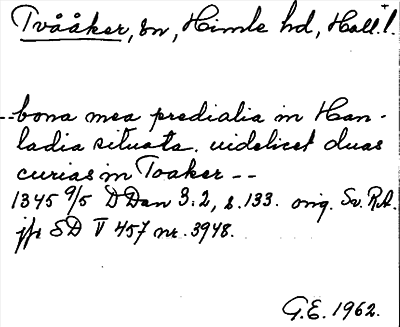 Tvååker, sn, Himle hd, Hall. l.
--bona mea predialia in Han-
ladia situata. uidelicet duas
curias in Toaker --
1345 9/5 DDan 3:2, s. 133. orig. Sv. R.A.
jfr SD V 457 nr. 3948.
G.E. 1962.